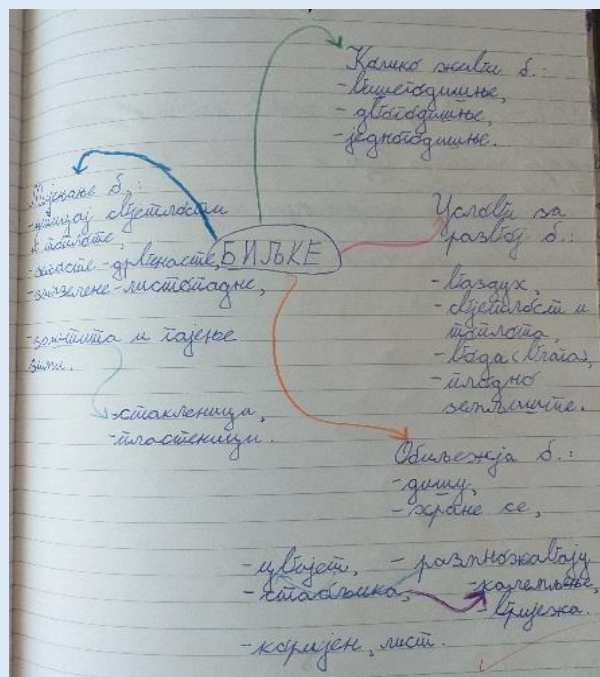 Колико живи б.:
-вишегодишње,
-двогодишње,
-једногодишње.
Мијењање б.:
-утицај свјетлости
и топлоте,
-зељасте-дрвенасте,
-зимзелене-листопадне,
-заштита и гајење
зими.
-стакленица,
-пластеници.
БИЉКЕ
Услови за
развој б.:
-ваздух,
-свјетлост и
топлота,
-вода (влага),
-плодно
земљиште.
Обиљежја б.:
-дишу,
-хране се,
-размножавају
-калемљење,
-вријежа.
-цвијет,
-стабљика,
-коријен, лист.